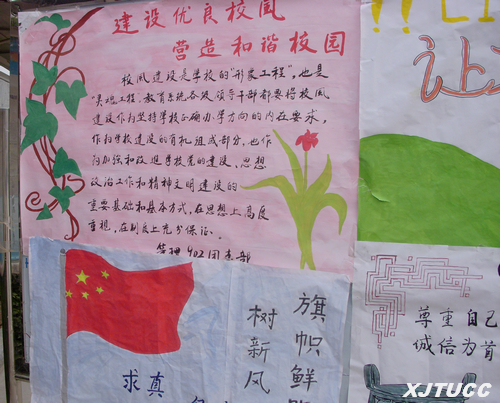 建设优良校风
营造和谐校园
校风建设是学校的“形象工程”,也是
“灵魂工程,教育系统各级领导干部都要将校风
建设作为坚持学校正确办学方向的内在要求,
作为学校建设的有机组成部分,也作
为加强和改进学校党的建设,思想
政治工作和精神文明建设的
重要基础和基本方式,在思想上高度
重视,在制度上充分保证。
管理402团支部
旗帜鲜
树新风
求真
尊重自己
诚信为首
XJTUCC